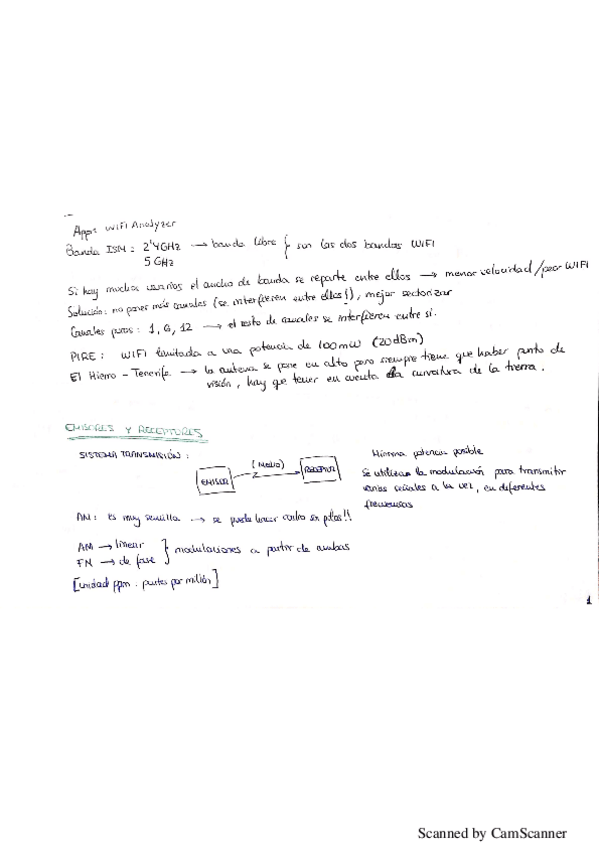 Apps WiFi Analyzer
Banda ISM : 2'4GHz → banda libre } son las dos bandas WiFi
5 GHz
Si hay muchos usuarios el ancho de banda se reparte entre ellos → menor velocidad/peor WiFi
Solución: no poner más canales (se interfieren entre ellos), mejor sectorizar
Canales puros : 1, 6, 12 → el resto de canales se interfieren entre sí.
PIRE : WiFi limitada a una potencia de 100mW (20dBm)
El Hierro - Tenerife → la antena se pone en alto pero siempre tiene que haber punto de
visión, hay que tener en cuenta la curvatura de la tierra.
EMISORES Y RECEPTORES
SISTEMA TRANSMISIÓN :
EMISOR (Medio) RECEPTOR
Mínima potencia posible
Se utiliza la modulación para transmitir
varias señales a la vez, en diferentes
frecuencias
AM : es muy sencilla → se puede hacer sin pilas!!
AM → linear } modulaciones a partir de ambas
FM → de fase
[unidad ppm : partes por millón]
1
Scanned by CamScanner